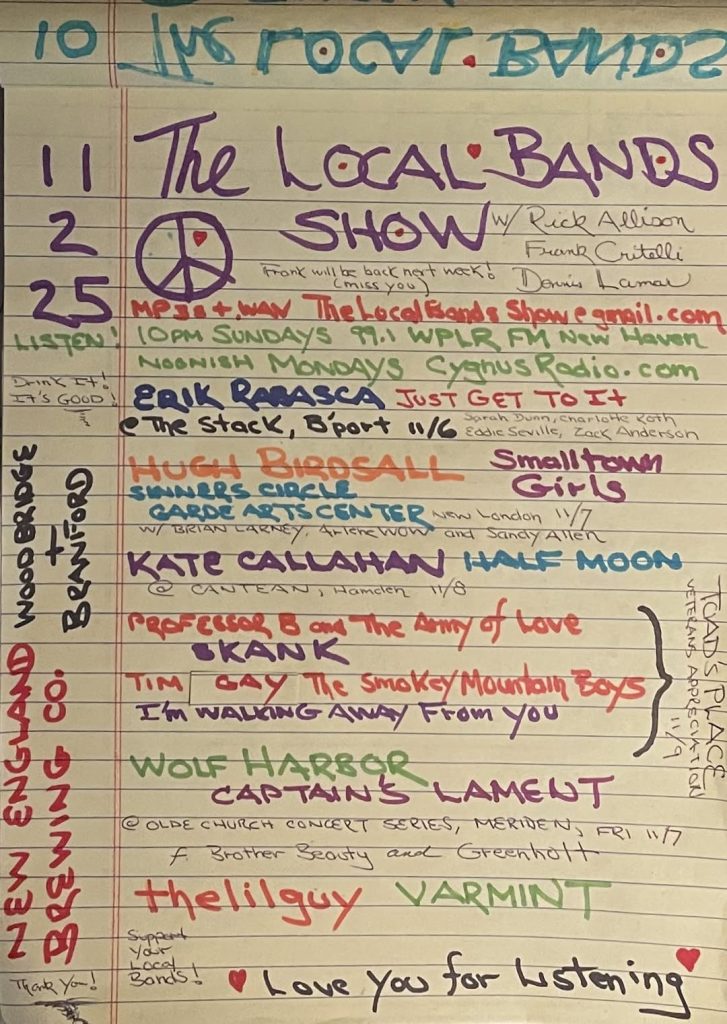 10 The LOCAL BANDS
11 The LOCAL BANDS
2 SHOW w/ Rick Allison
Frank Critelli
Frank will be back next week! Dennis Lamar
(miss you)
25 MP3s + .WAV TheLocalBandsShow@gmail.com
LISTEN! 10PM SUNDAYS 99.1 WPLR FM New Haven
NOONISH MONDAYS CygnusRadio.com
Drink It!
IT'S GOOD!
ERIK RABASCA JUST GET TO It
@ The Stack, B'port 11/6 Sarah Dunn, Charlotte Koth
Eddie Seville, Zack Anderson
HUGH BIRDSALL Smalltown
Girls
SINNERS CIRCLE
GARDE ARTS CENTER New London 11/7
w/ BRIAN LARNEY, Arlene WOW and Sandy Allen
KATE CALLAHAN HALF MOON
@ CANTEAN, Hamden 11/8
PROFESSOR B and The Army of Love
SKANK
TIM GAY The Smokey Mountain Boys
I'm WALKING AWAY From You
TOADS PLACE
VETERANS APPRECIATION
11/9
WOLF HARBOR
CAPTAIN'S LAMENT
@ OLDE CHURCH CONCERT SERIES, MERIDEN, FRI 11/7
f. Brother Beauty and Greenhott
thelilguy VARMINT
Support
Your
Local
Bands!
Love You for Listening
WOODBRIDGE
+
BRANFORD
NEW ENGLAND
BREWING CO.
Thank You!